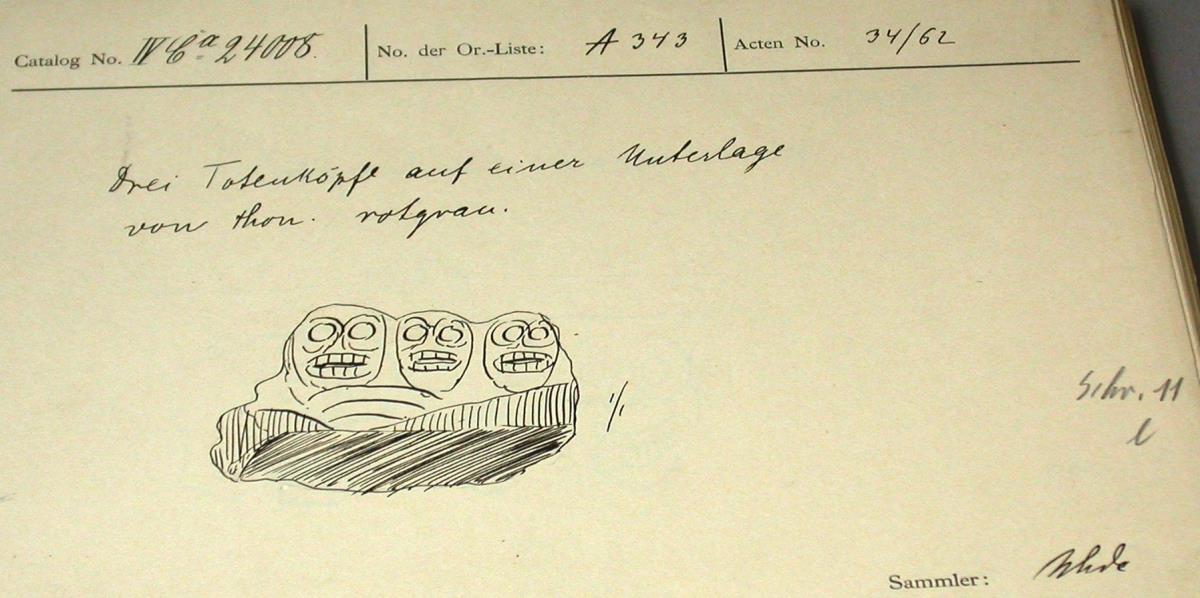 Catalog No. IV Ca 24008. No. der Or.-Liste: A 343 Acten No. 34/62
Drei Totenköpfe auf einer Unterlage
von thon. rotgrau.
1/1
Schr. 11
l
Sammler: Uhde